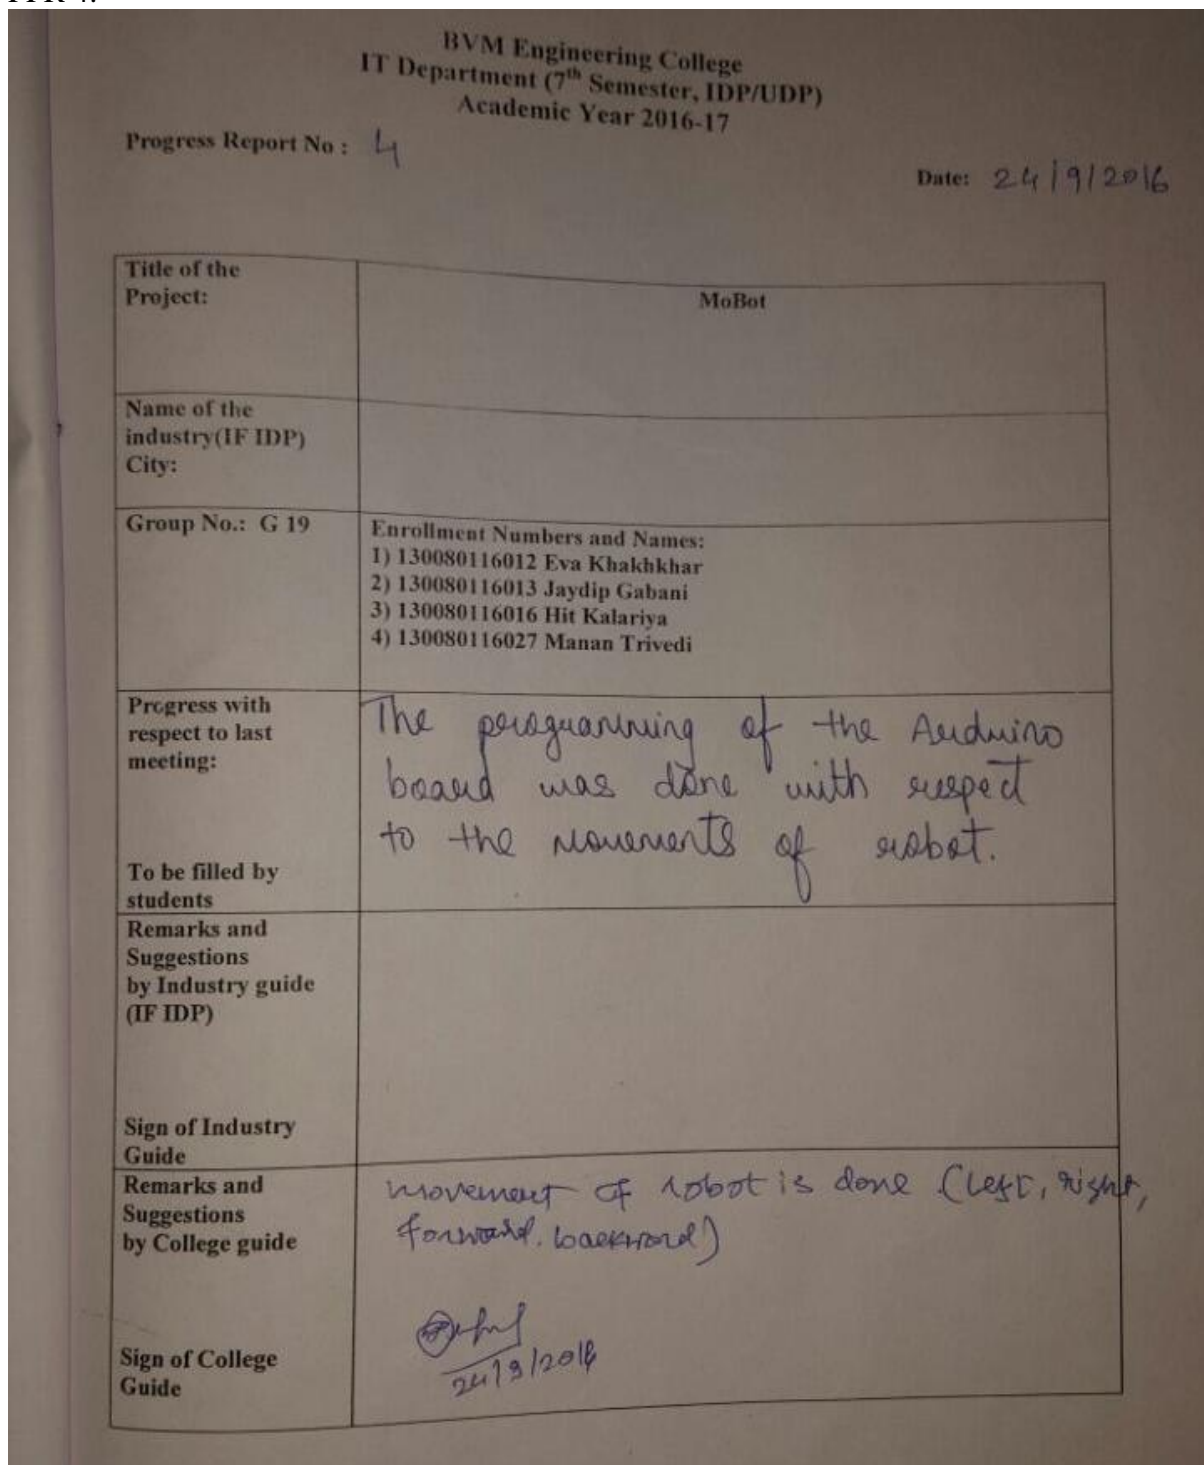 BVM Engineering College
IT Department (7th Semester, IDP/UDP)
Academic Year 2016-17
Progress Report No : 4
Date: 24/9/2016
Title of the
Project:
MoBot
Name of the
industry(IF IDP)
City:
Group No.: G 19
Enrollment Numbers and Names:
1) 130080116012 Eva Khakhkhar
2) 130080116013 Jaydip Gabani
3) 130080116016 Hit Kalariya
4) 130080116027 Manan Trivedi
Progress with
respect to last
meeting:
To be filled by
students
The programming of the Arduino
board was done with respect
to the movements of robot.
Remarks and
Suggestions
by Industry guide
(IF IDP)
Sign of Industry
Guide
Remarks and
Suggestions
by College guide
movement of robot is done (left, right,
forward. backword)
Sign of College
Guide
24/9/2016